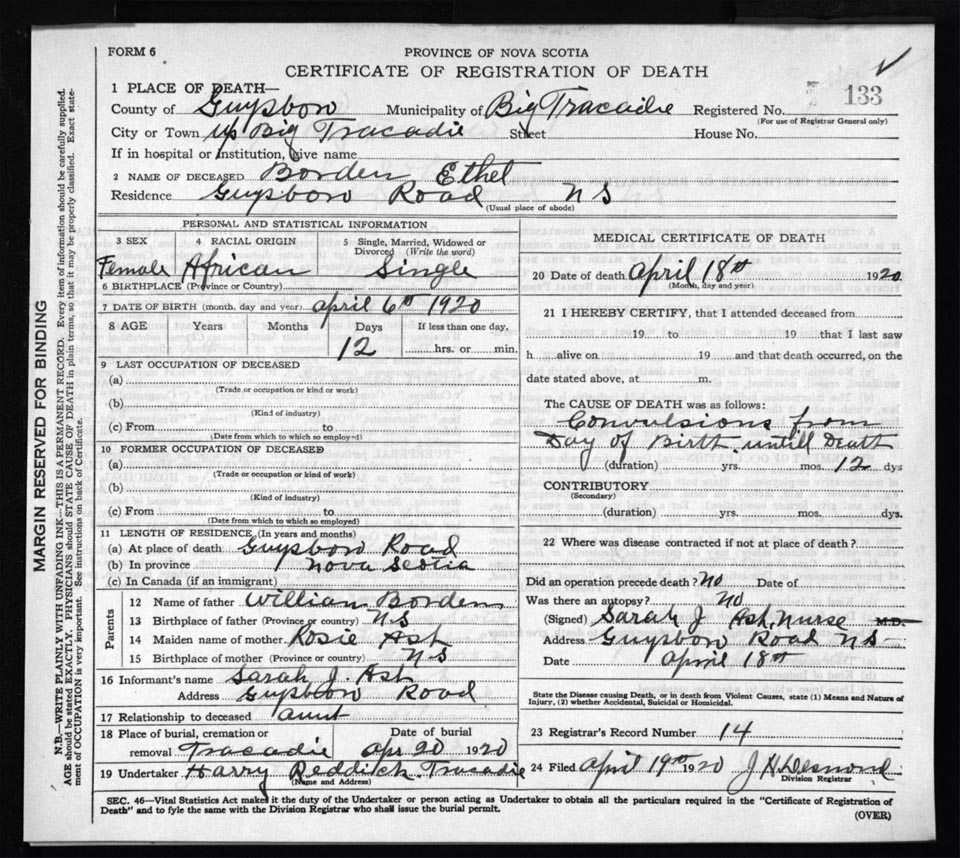 FORM 6
PROVINCE OF NOVA SCOTIA
CERTIFICATE OF REGISTRATION OF DEATH
1 PLACE OF DEATH—
County of Guysboro Municipality of Big Tracadie Registered No. 133
(For use of Registrar General only)
City or Town up Big Tracadie Street House No.
If in hospital or institution, give name
2 NAME OF DECEASED Borden Ethel
Residence Guysboro Road NS
(Usual place of abode)
PERSONAL AND STATISTICAL INFORMATION
3 SEX 4 RACIAL ORIGIN 5 Single, Married, Widowed or Divorced (Write the word)
Female African Single
6 BIRTHPLACE (Province or Country)
7 DATE OF BIRTH (month, day and year) April 6th 1920
8 AGE Years Months Days If less than one day,
12 hrs. or min.
9 LAST OCCUPATION OF DECEASED
(a)
(Trade or occupation or kind or work)
(b)
(Kind of industry)
(c) From to
(Date from which to which so employed)
10 FORMER OCCUPATION OF DECEASED
(a)
(Trade or occupation or kind of work)
(b)
(Kind of industry)
(c) From to
(Date from which to which so employed)
11 LENGTH OF RESIDENCE (In years and months)
(a) At place of death Guysboro Road
(b) In province Nova Scotia
(c) In Canada (if an immigrant)
Parents
12 Name of father William Borden
13 Birthplace of father (Province or country) NS
14 Maiden name of mother Rosie Ash
15 Birthplace of mother (Province or country) NS
16 Informant's name Sarah J. Ash
Address Guysboro Road
17 Relationship to deceased aunt
18 Place of burial, cremation or removal Tracadie Date of burial Apr 20 1920
19 Undertaker Harry Reddick Tracadie
(Name and Address)
MEDICAL CERTIFICATE OF DEATH
20 Date of death April 18th 1920
(Month, day and year)
21 I HEREBY CERTIFY, that I attended deceased from
19 to 19 that I last saw
h alive on 19 and that death occurred, on the
date stated above, at m.
The CAUSE OF DEATH was as follows:
Convulsions from
Day of Birth untill Death
(duration) yrs. mos. 12 dys
CONTRIBUTORY
(Secondary)
(duration) yrs. mos. dys.
22 Where was disease contracted if not at place of death?
Did an operation precede death? No Date of
Was there an autopsy? No
(Signed) Sarah J Ash, Nurse M.D.
Address Guysboro Road NS
Date April 18th
State the Disease causing Death, or in death from Violent Causes, state (1) Means and Nature of
Injury, (2) whether Accidental, Suicidal or Homicidal.
23 Registrar's Record Number 14
24 Filed April 19th 1920 J H Desmond
Division Registrar
SEC. 46—Vital Statistics Act makes it the duty of the Undertaker or person acting as Undertaker to obtain all the particulars required in the "Certificate of Registration of
Death" and to fyle the same with the Division Registrar who shall issue the burial permit.
(OVER)
MARGIN RESERVED FOR BINDING
N.B.—WRITE PLAINLY WITH UNFADING INK—THIS IS A PERMANENT RECORD. Every item of information should be carefully supplied.
AGE should be stated EXACTLY. PHYSICIANS should STATE CAUSE OF DEATH in plain terms, so that it may be properly classified. Exact state-
ment of OCCUPATION is very important. See instructions on back of Certificate.